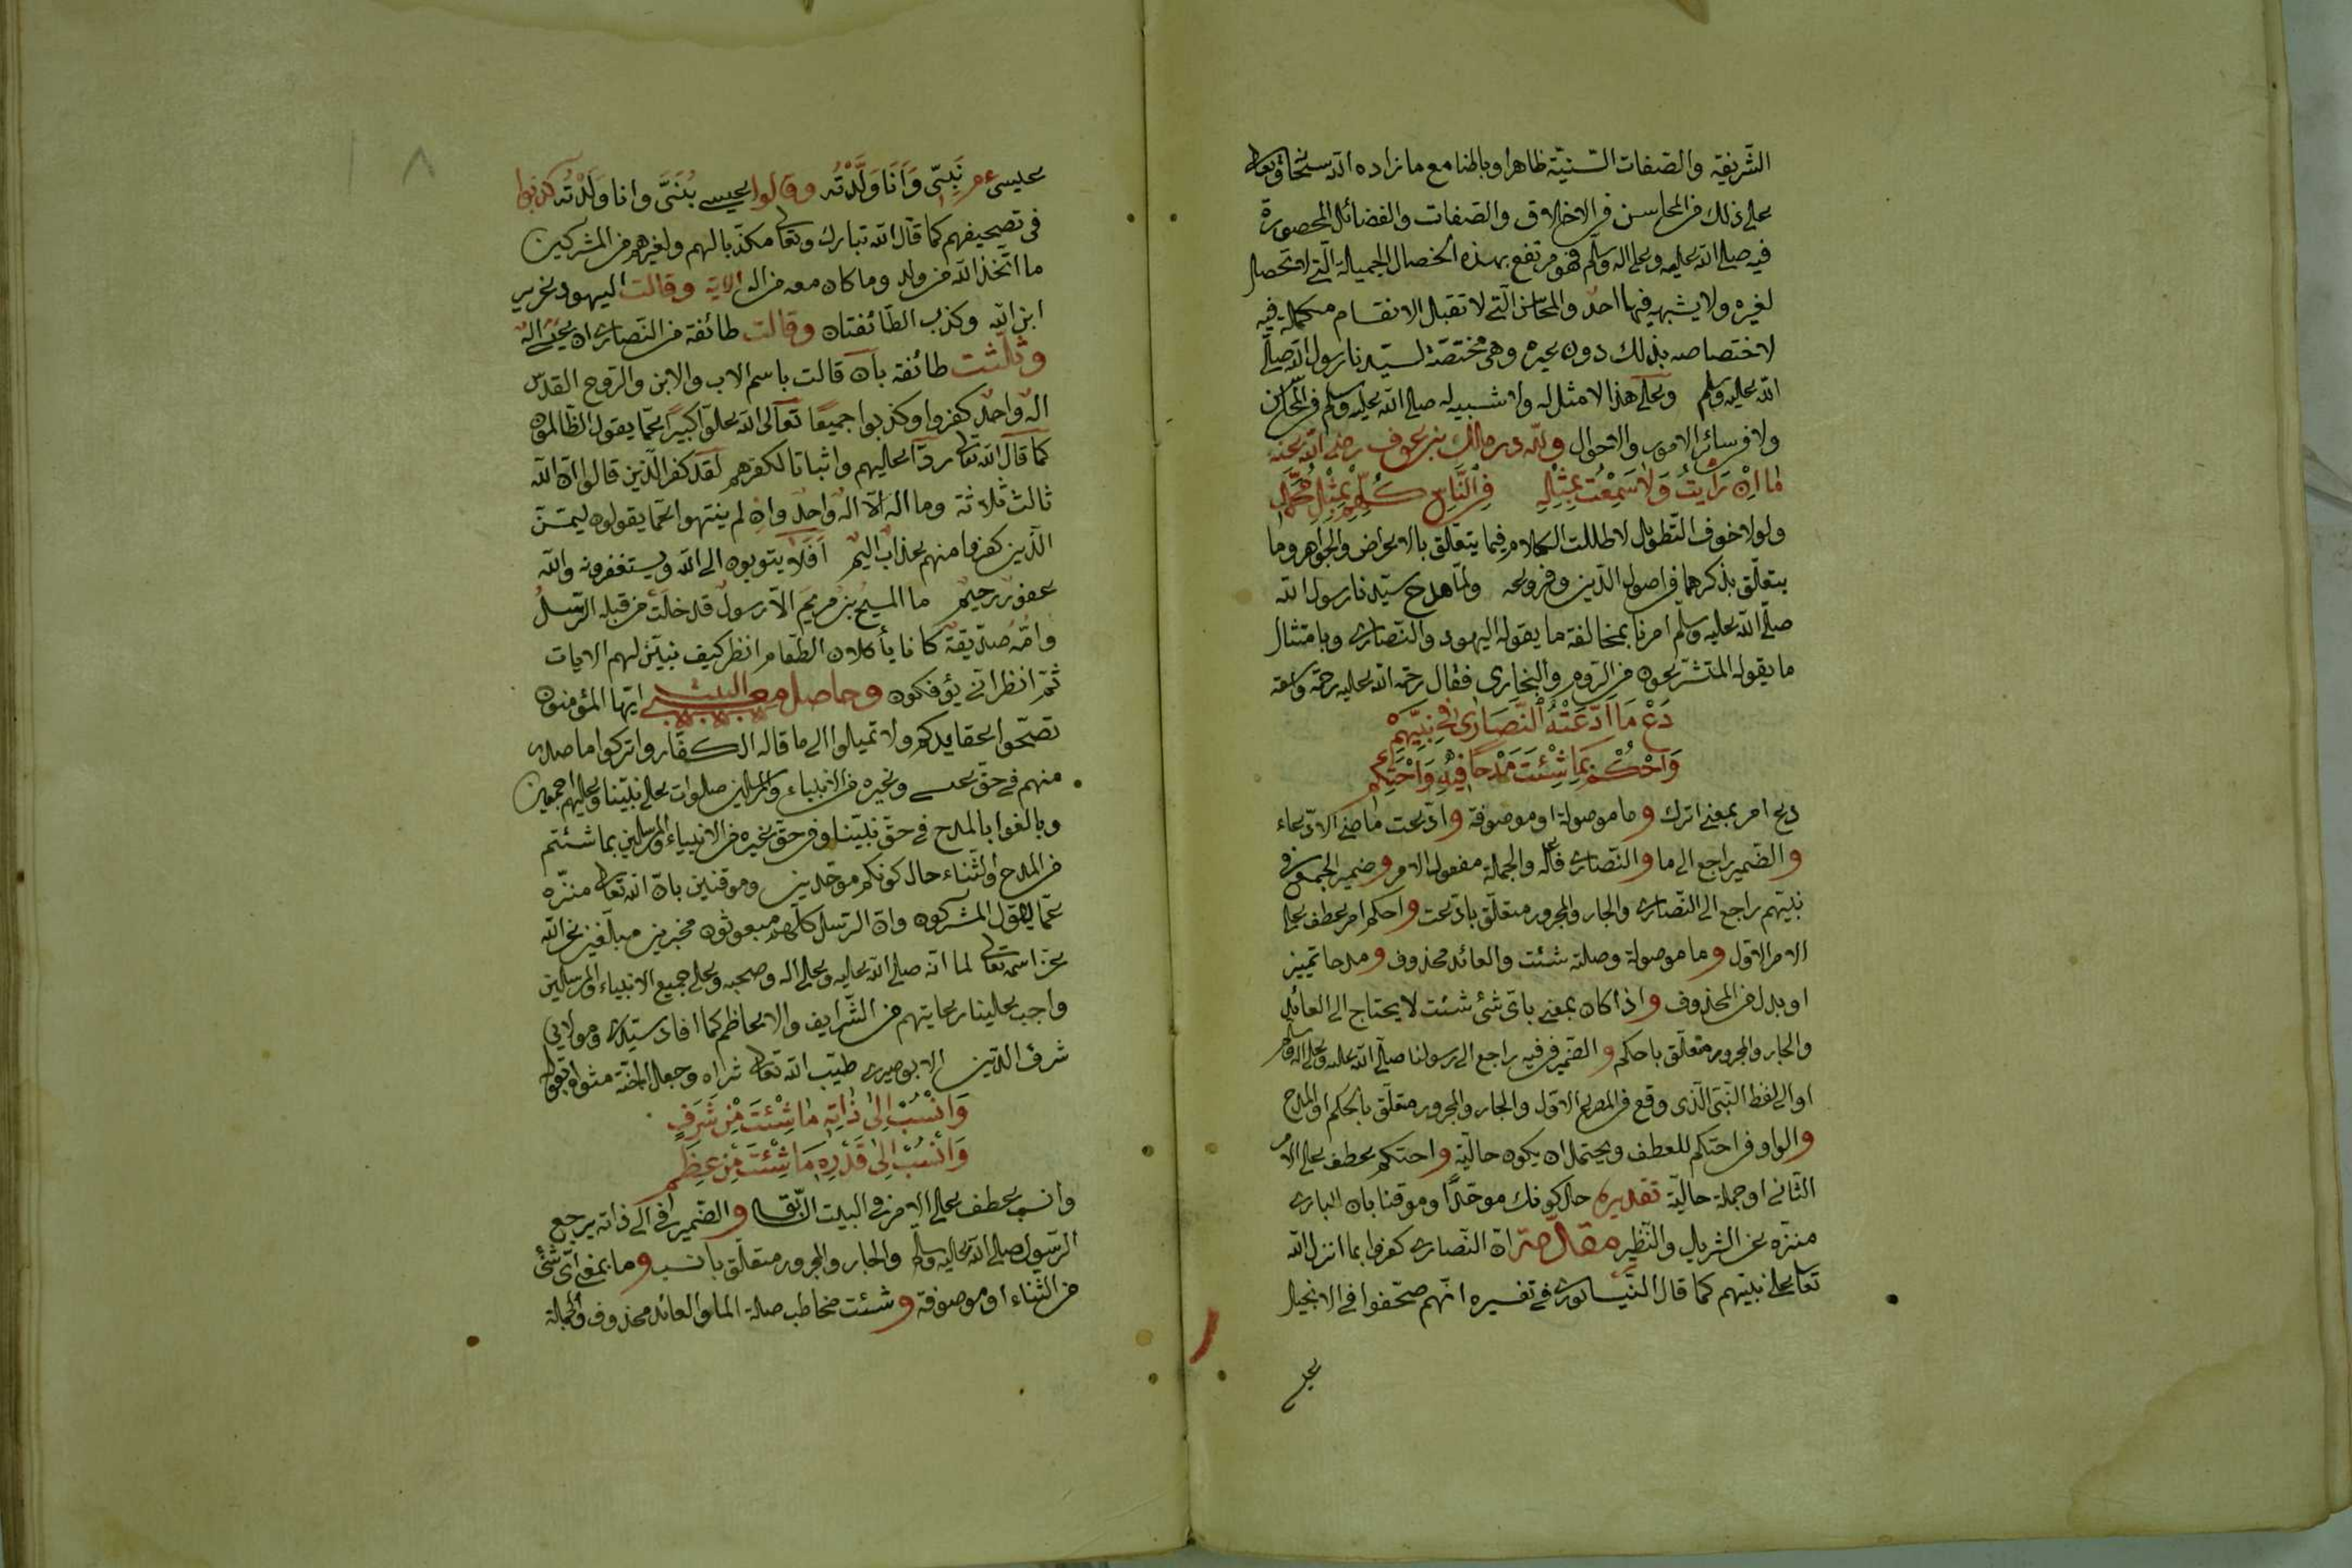 الشريفة والصفات السنية ظاهرا وباطنا مع ما زاده الله سبحانه وتعالى
على ذلك من المحاسن في الاخلاق والصفات والفضائل المحصورة
فيه صلى الله عليه وعلى اله وسلم فهو مرتفع بهذه الخصال الجميلة التي لا تحصل
لغيره ولا يشبه فيها احد والمحاسن التي لا تقبل الانقسام مكملة فيه
لاختصاصه بذلك دون غيره وهي مختصة لسيدنا رسول الله صلى
الله عليه وسلم وعلى هذا لا مثل له ولا شبيه له صلى الله عليه وسلم في المحاسن
ولا في سائر الامور والاحوال ولله در مالك بن عوف رضي الله عنه
مَا اِنْ رَاَيْتُ وَلَا سَمِعْتُ بِمِثْلِهِ فِي النَّاسِ كُلِّهِمْ بِمِثْلِ مُحَمَّدٍ
ولولا خوف التطويل لاطلت الكلام فيما يتعلق بالاعراض والجواهر وما
يتعلق بذكرهما في اصول الدين وفروعه ولما مدح سيدنا رسول الله
صلى الله عليه وسلم امرنا بمخالفة ما يقوله اليهود والنصارى وبامتثال
ما يقوله المتشرعون من الروم والبخارى فقال رحمة الله عليه رحمة واسعة
دَعْ مَا ادَّعَتْهُ النَّصَارٰى فِي نَبِيِّهِمْ
وَاحْكُمْ بِمَا شِئْتَ مَدْحًا فِيهِ وَاحْتَكِمِ
دع امر بمعنى اترك وما موصولة او موصوفة وادعت ماضي الادعاء
والضمير راجع الى ما والنصارى فاعله والجملة مفعول الامر وضمير الجمع في
نبيهم راجع الى النصارى والجار والمجرور متعلق بادعت واحكم امر عطف على
الامر الاول وما موصولة وصلته شئت والعائد محذوف ومدحا تمييز
او بدل من المحذوف واذا كان بمعنى باي شئ شئت لا يحتاج الى العائد
والجار والمجرور متعلق باحكم والضمير في فيه راجع الى رسولنا صلى الله عليه وعلى اله وسلم
او الى لفظ النبي الذي وقع في المصرع الاول والجار والمجرور متعلق باحكم او المدح
والواو في احتكم للعطف ويحتمل ان يكون حالية واحتكم عطف على الامر
الثاني او جملة حالية تقديره حال كونك موحدا وموقنا بان الباري
منزه عن الشريك والنظير مقدمة ان النصارى كفروا بما انزل الله
تعالى على نبيهم كما قال النيسابوري في تفسيره انهم صحفوا في الانجيل
عيسى
عيسى عم نَبِيّي وَاَنَا وَلَّدْتُه وقالوا عيسى بُنَيَّ وانا وَلَدْتُه كذبوا
في تصحيفهم كما قال الله تبارك وتعالى مكذبا لهم ولغيرهم من المشركين
ما اتخذ الله من ولد وما كان معه من اله الاية وقالت اليهود عزير
ابن الله وكذب الطائفتان وقالت طائفة من النصارى ان عيسى اله
وثلثت طائفة بان قالت باسم الاب والابن والروح القدس
اله واحد كفروا وكذبوا جميعا تعالى الله علوا كبيرا عما يقول الظالمون
كما قال الله تعالى ردا عليهم واثباتا لكفرهم لقد كفر الذين قالوا ان الله
ثالث ثلاثة وما اله الا اله واحد وان لم ينتهوا عما يقولون ليمسن
الذين كفروا منهم عذاب اليم افلا يتوبون الى الله ويستغفرونه والله
غفور رحيم ما المسيح بن مريم الا رسول قد خلت من قبله الرسل
وامه صديقة كانا يأكلان الطعام انظر كيف نبين لهم الايات
ثم انظر انى يؤفكون وحاصل معنى البيت ايها المؤمنون
تصححوا عقايدكم ولا تميلوا الى ما قاله الكفار واتركوا ما صدر
منهم في حق عيسى وغيره من الانبياء والمرسلين صلوات على نبينا وعليهم اجمعين
وبالغوا بالمدح في حق نبينا وفي حق غيره من الانبياء والمرسلين بما شئتم
من المدح والثناء حال كونكم موحدين وموقنين بان الله تعالى منزه
عما يقول المشركون وان الرسل كلهم مبعوثون مخبرين مبلغين عن الله
عز اسمه تعالى لما انه صلى الله عليه وعلى اله وصحبه وعلى جميع الانبياء والمرسلين
واجب علينا رعايتهم من الشرايف والاعاظم كما افاد سيدي ومولايي
شرف الدين الابوصيري طيب الله تعالى ثراه وجعل الجنة مثواه بقوله
وَانْسُبْ اِلٰى ذَاتِهِ مَا شِئْتَ مِنْ شَرَفٍ
وَانْسُبْ اِلٰى قَدْرِهِ مَا شِئْتَ مِنْ عِظَمِ
وانسب عطف على الامر في البيت السابق والضمير في الى ذاته يرجع
الرسول صلى الله عليه وسلم والجار والمجرور متعلق بانسب وما بمعنى اي شئ
من الثناء او موصوفة وشئت مخاطب صلة الما والعائد محذوف والجملة